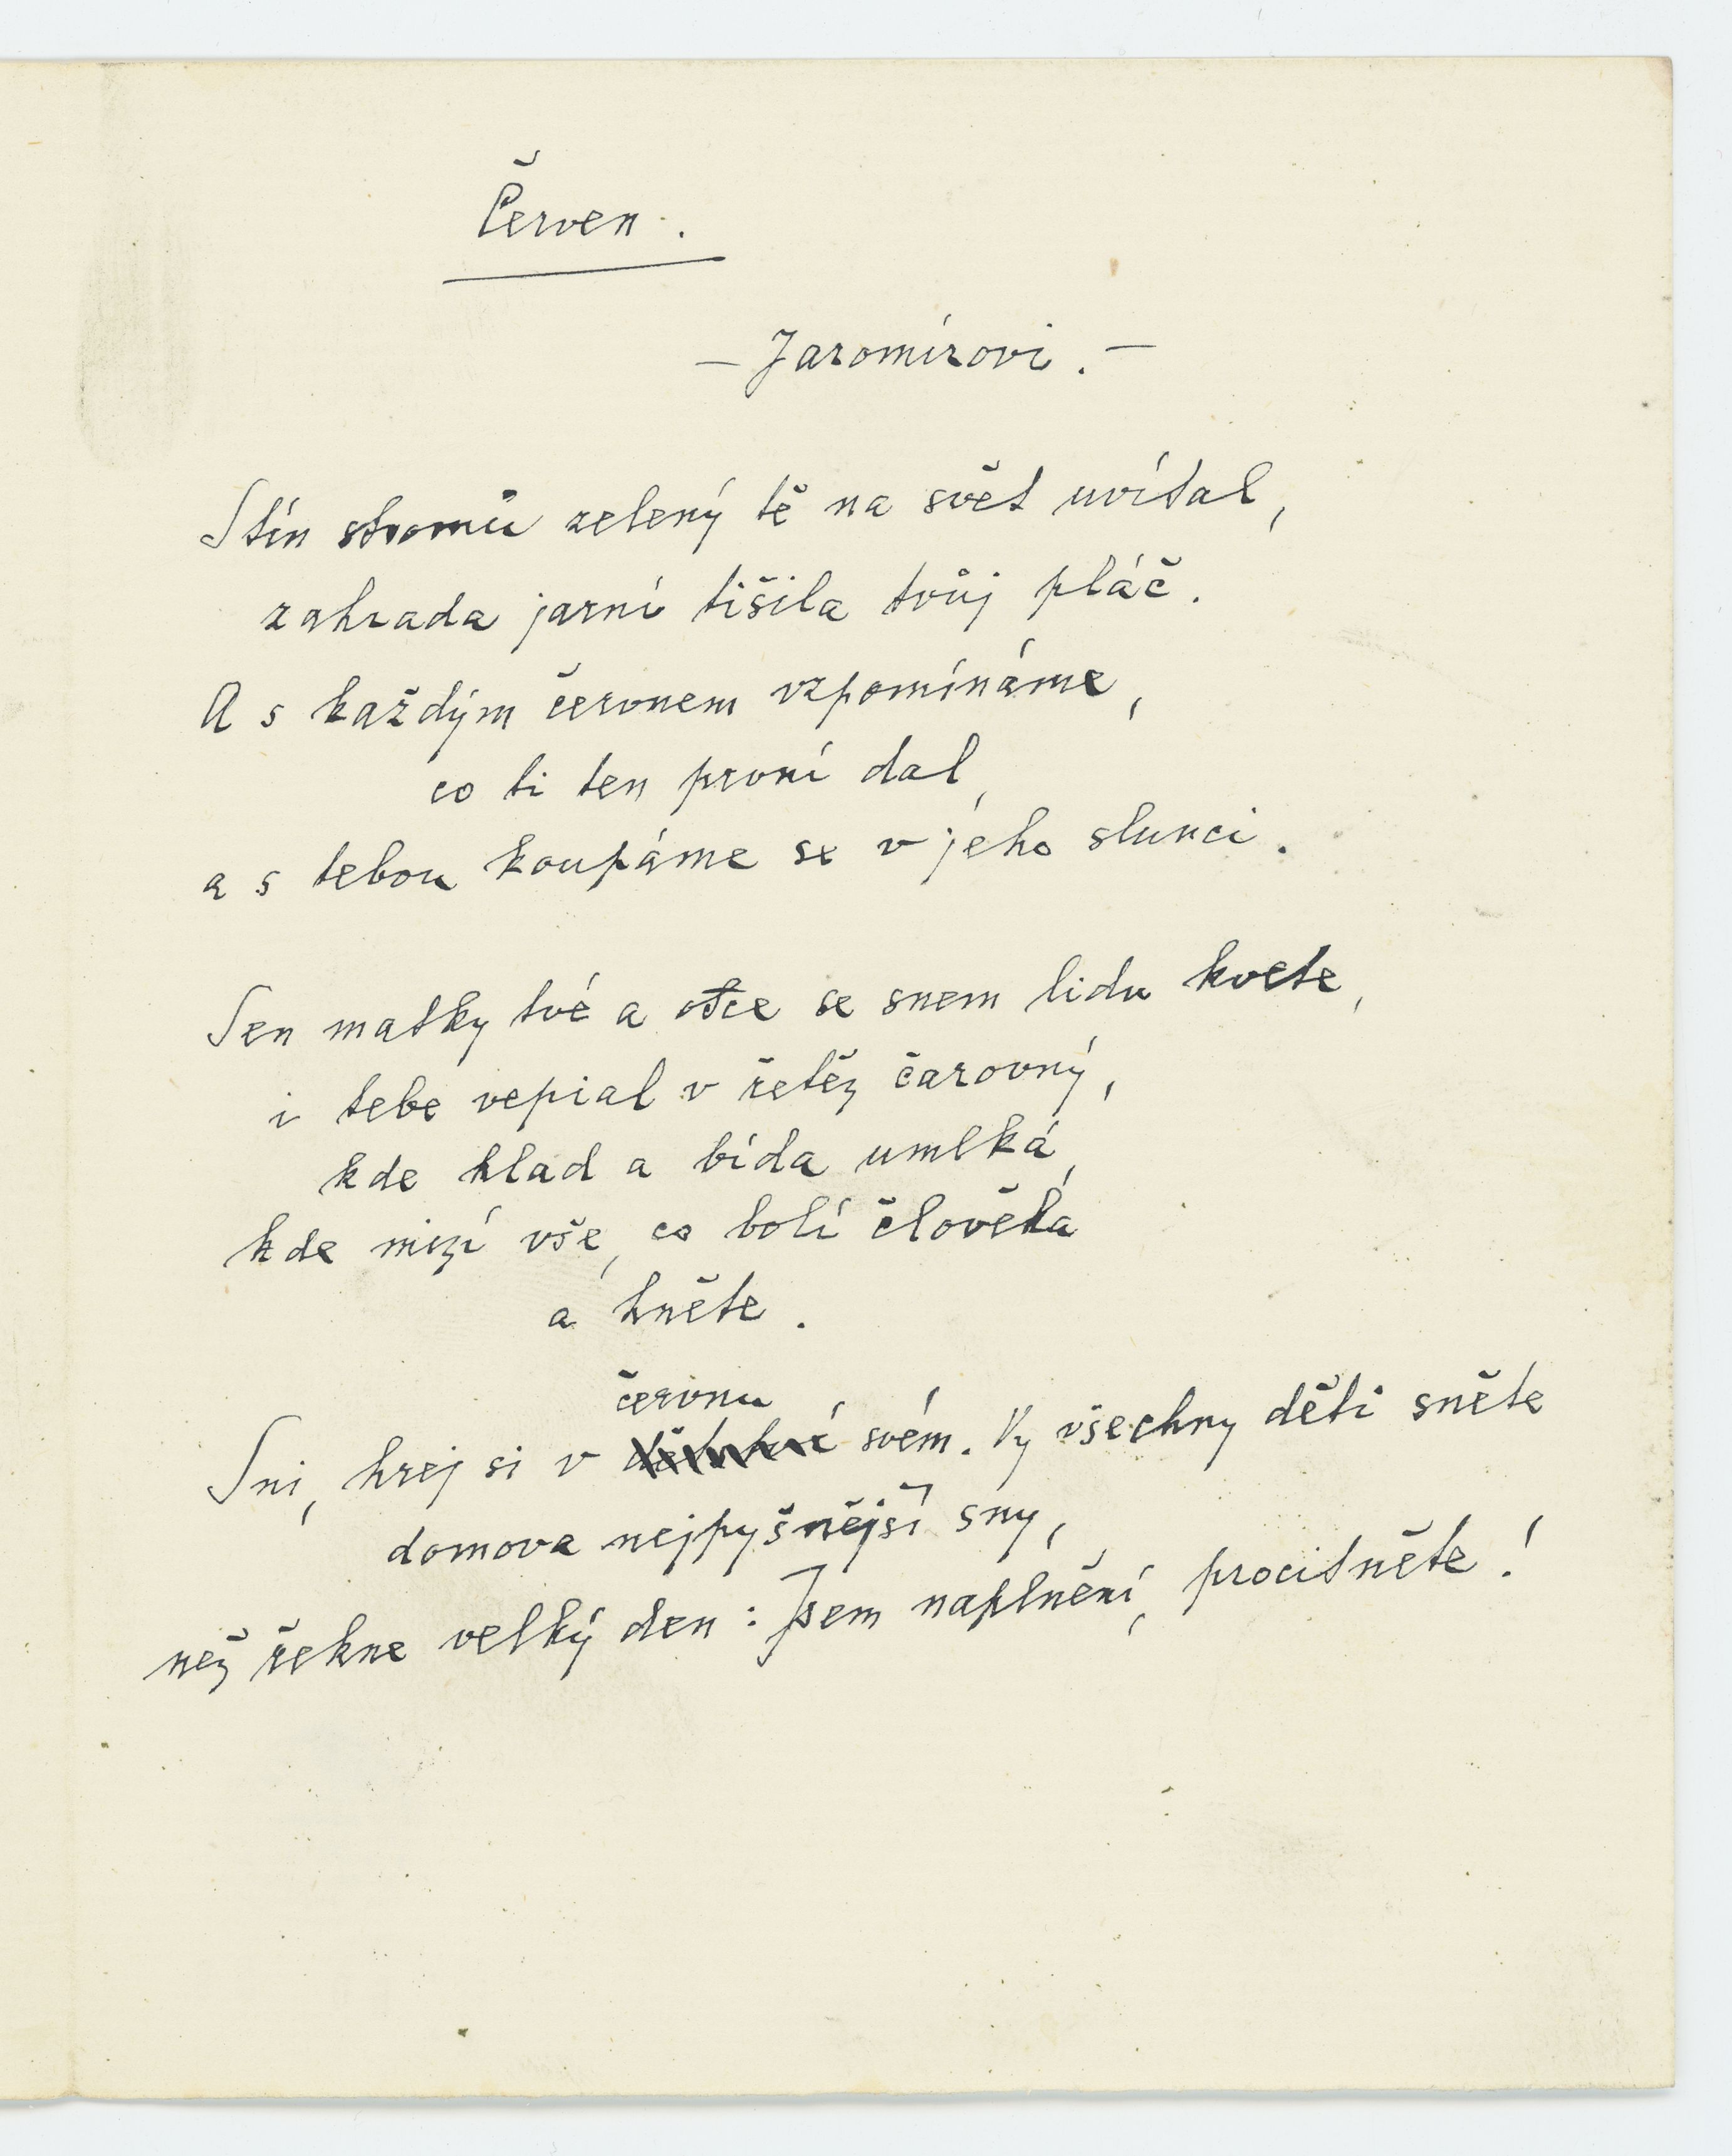 Červen.
— Jaromírovi. —
Stín stromů zelený tě na svět uvítal,
zahrada jarní tišila tvůj pláč.
A s každým červnem vzpomínáme,
co ti ten první dal,
a s tebou koupáme se v jeho slunci.
Sen matky tvé a otce se snem lidu kvete,
i tebe vepial v řetěz čarovný,
kde hlad a bída umlká,
kde mizí vše, co bolí člověka
a hněte.
červnu
Sni, hrej si v svém. Vy všechny děti sněte
domova nejpyšnější sny,
než řekne velký den: Jsem naplnění, procitněte!